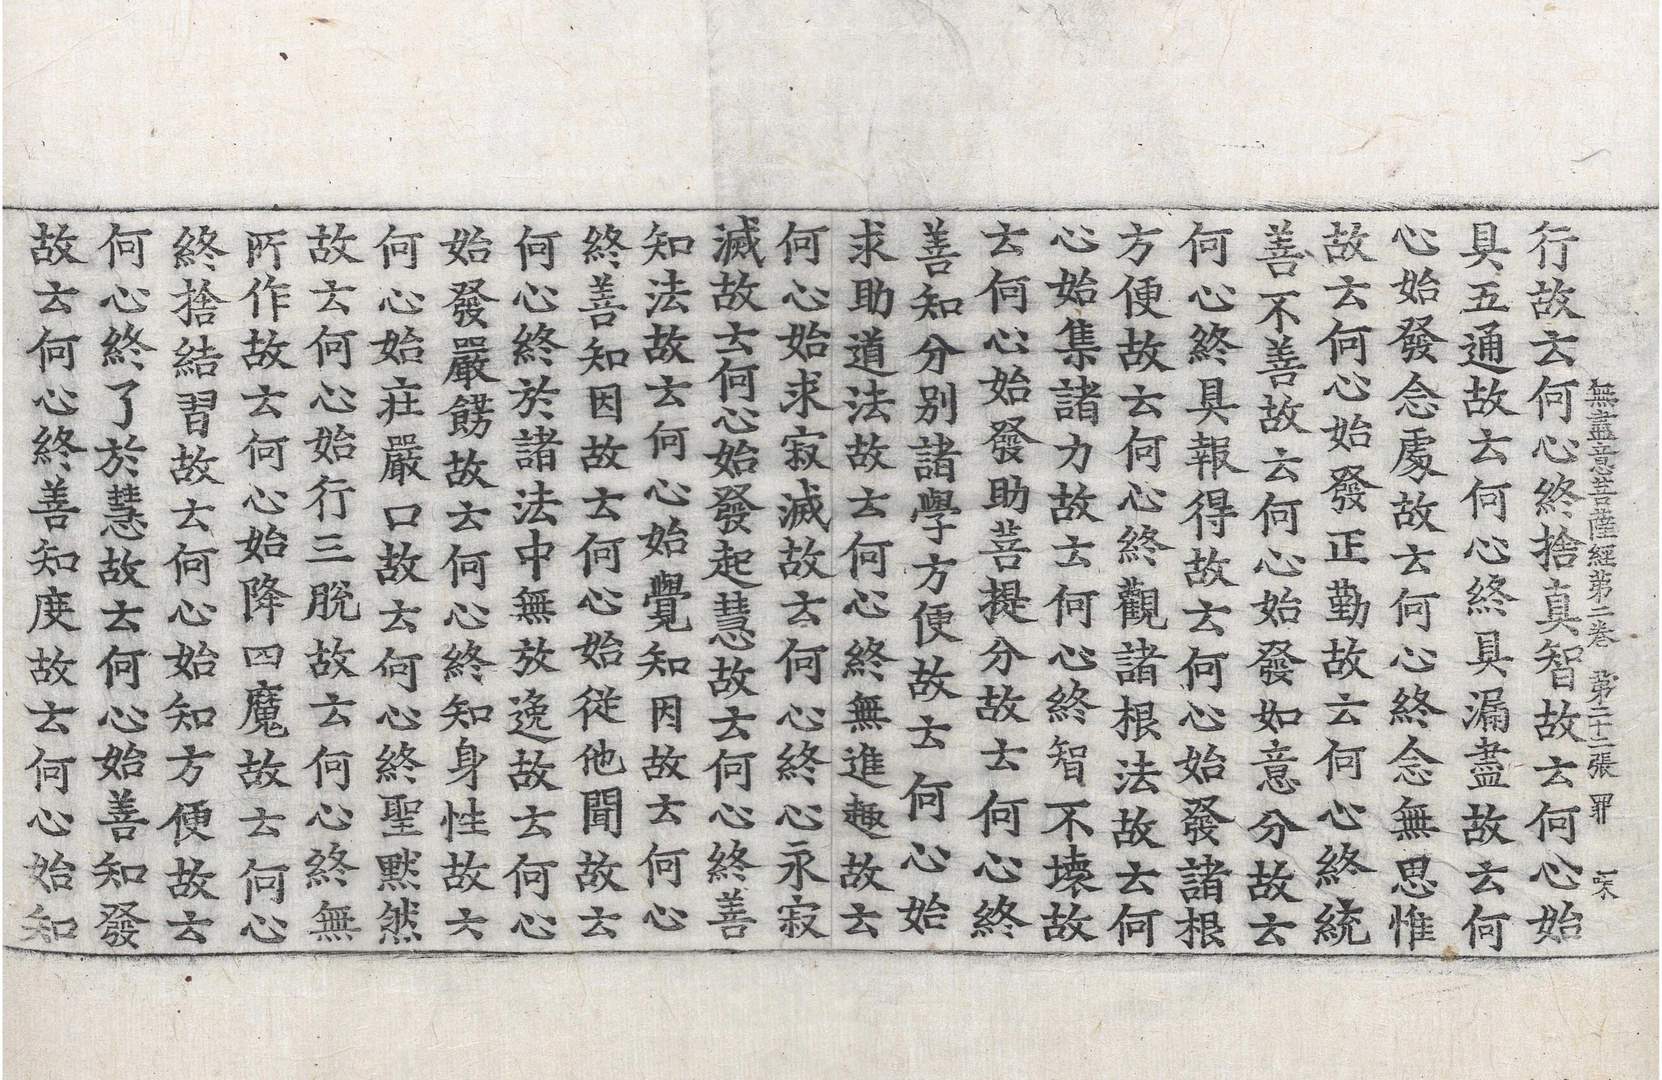 無盡意菩薩經第二卷 第二十一張 罪
行故云何心終捨真智故云何心始
具五通故云何心終具漏盡故云何
心始發念處故云何心終念無思惟
故云何心始發正勤故云何心終統
善不善故云何心始發如意分故云
何心終具報得故云何心始發諸根
方便故云何心終觀諸根法故云何
心始集諸力故云何心終智不壞故
云何心始發助菩提分故云何心終
善知分別諸學方便故云何心始
求助道法故云何心終無進趣故云
何心始求寂滅故云何心終心永寂
滅故云何心始發起慧故云何心終善
知法故云何心始覺知因故云何心
終善知因故云何心始從他聞故云
何心終於諸法中無放逸故云何心
始發嚴餝故云何心終知身性故云
何心始莊嚴口故云何心終聖默然
故云何心始行三脫故云何心終無
所作故云何心始降四魔故云何心
終捨結習故云何心始知方便故云
何心終了於慧故云何心始善知發
故云何心終善知度故云何心始知